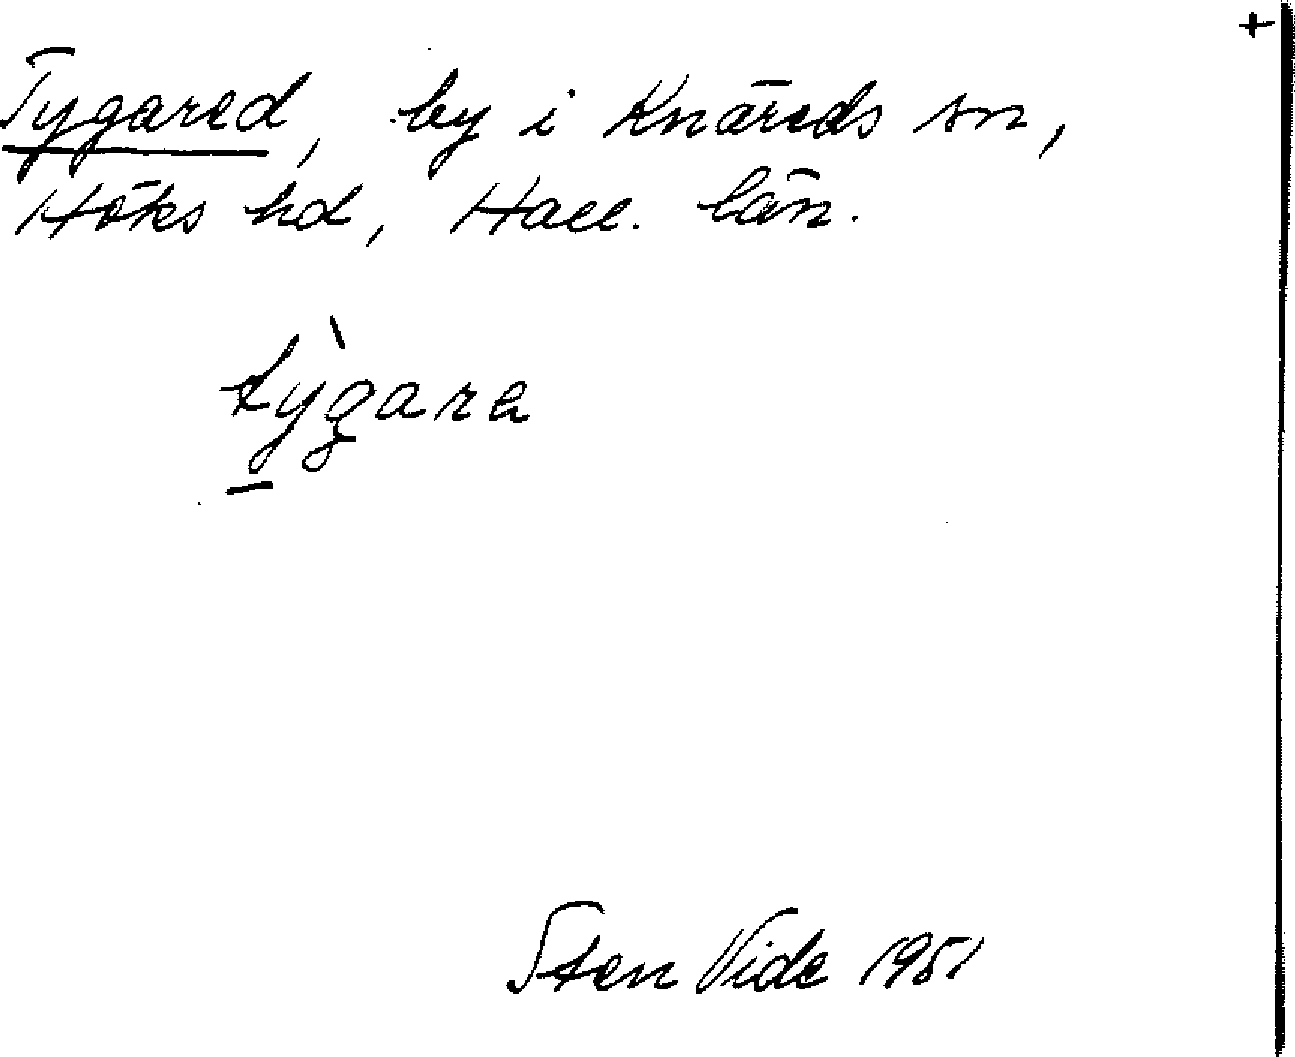 +
Tygared, by i Knäreds sn,
Höks hd, Hall. län.
tỳgara
Sten Vide 1951